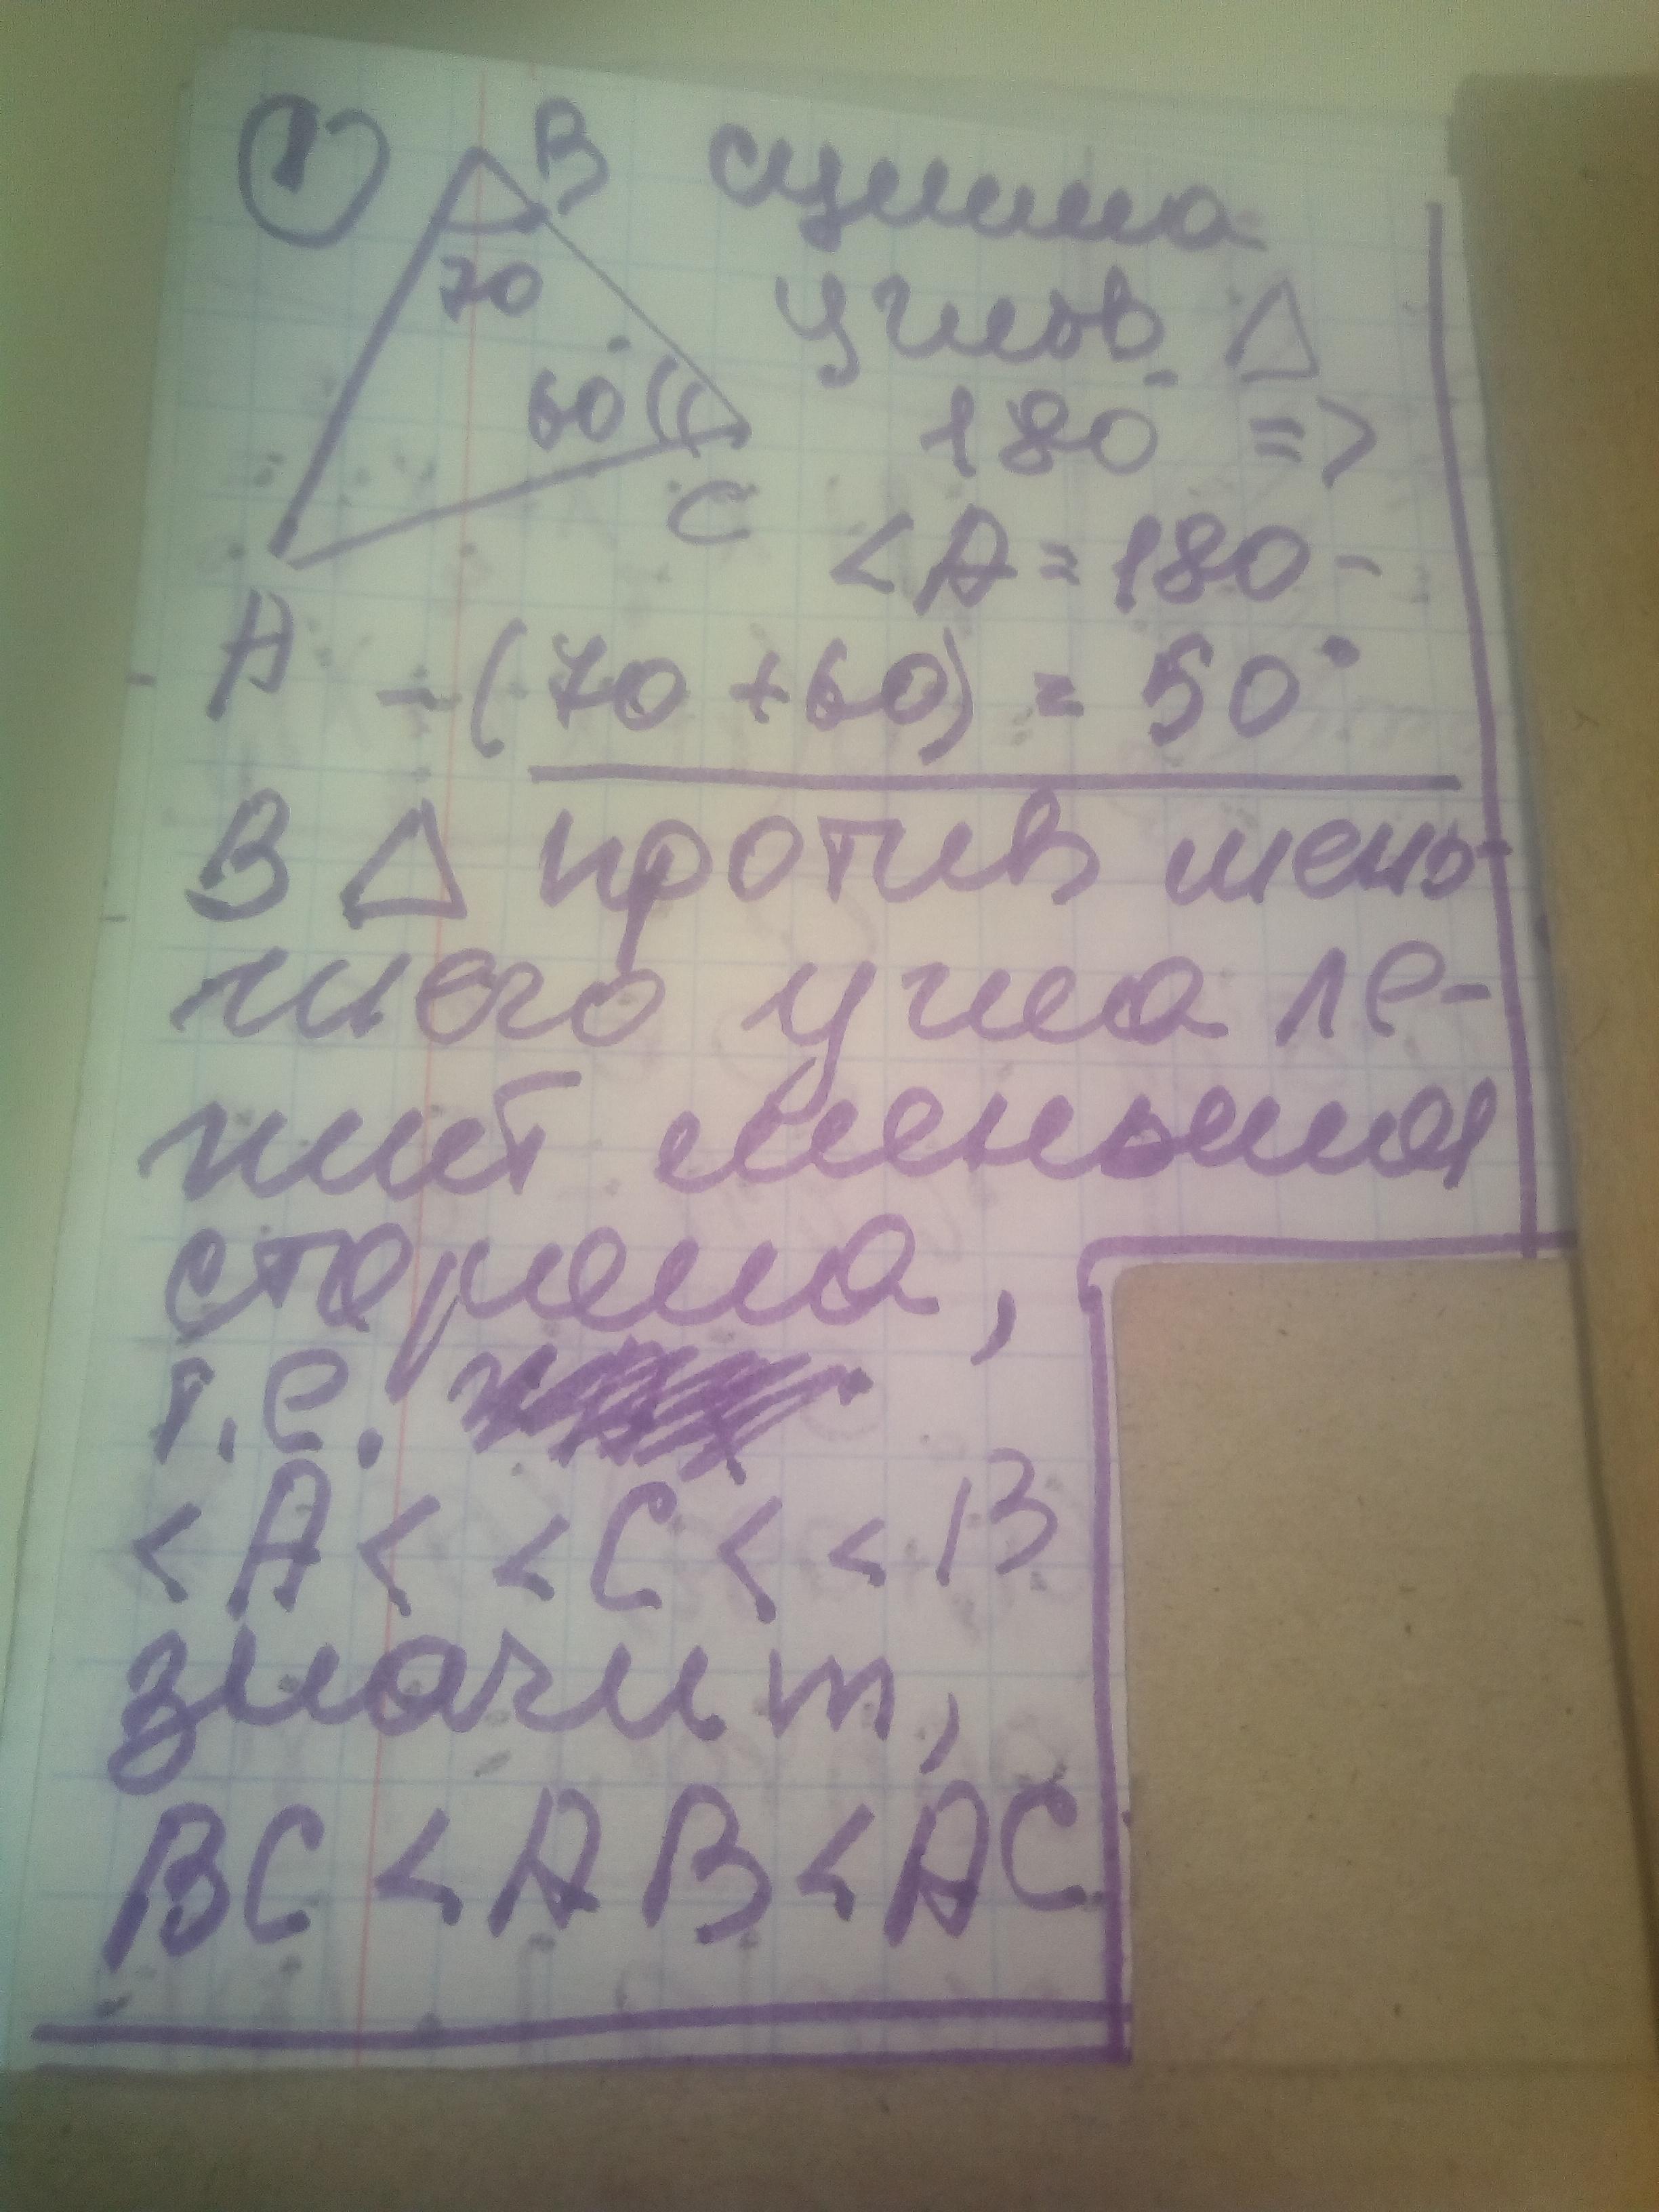 1
B сумма
70 углов △
60° 180° =>
C <A = 180 -
A - (70 + 60) = 50°
В △ против мень-
шего угла ле-
жит меньшая
сторона,
т.е.
<A < <C < <B
значит,
BC < AB < AC